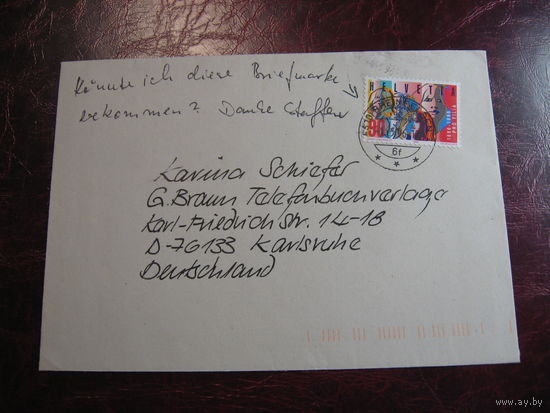 Könnte ich diese Briefmarke
bekommen? Danke Steffen
HELVETIA
90
6f
Karina Schiefer
G. Braun Telefonbuchverlage
Karl-Friedrich Str. 14-18
D-76133 Karlsruhe
Deutschland
www.ay.by